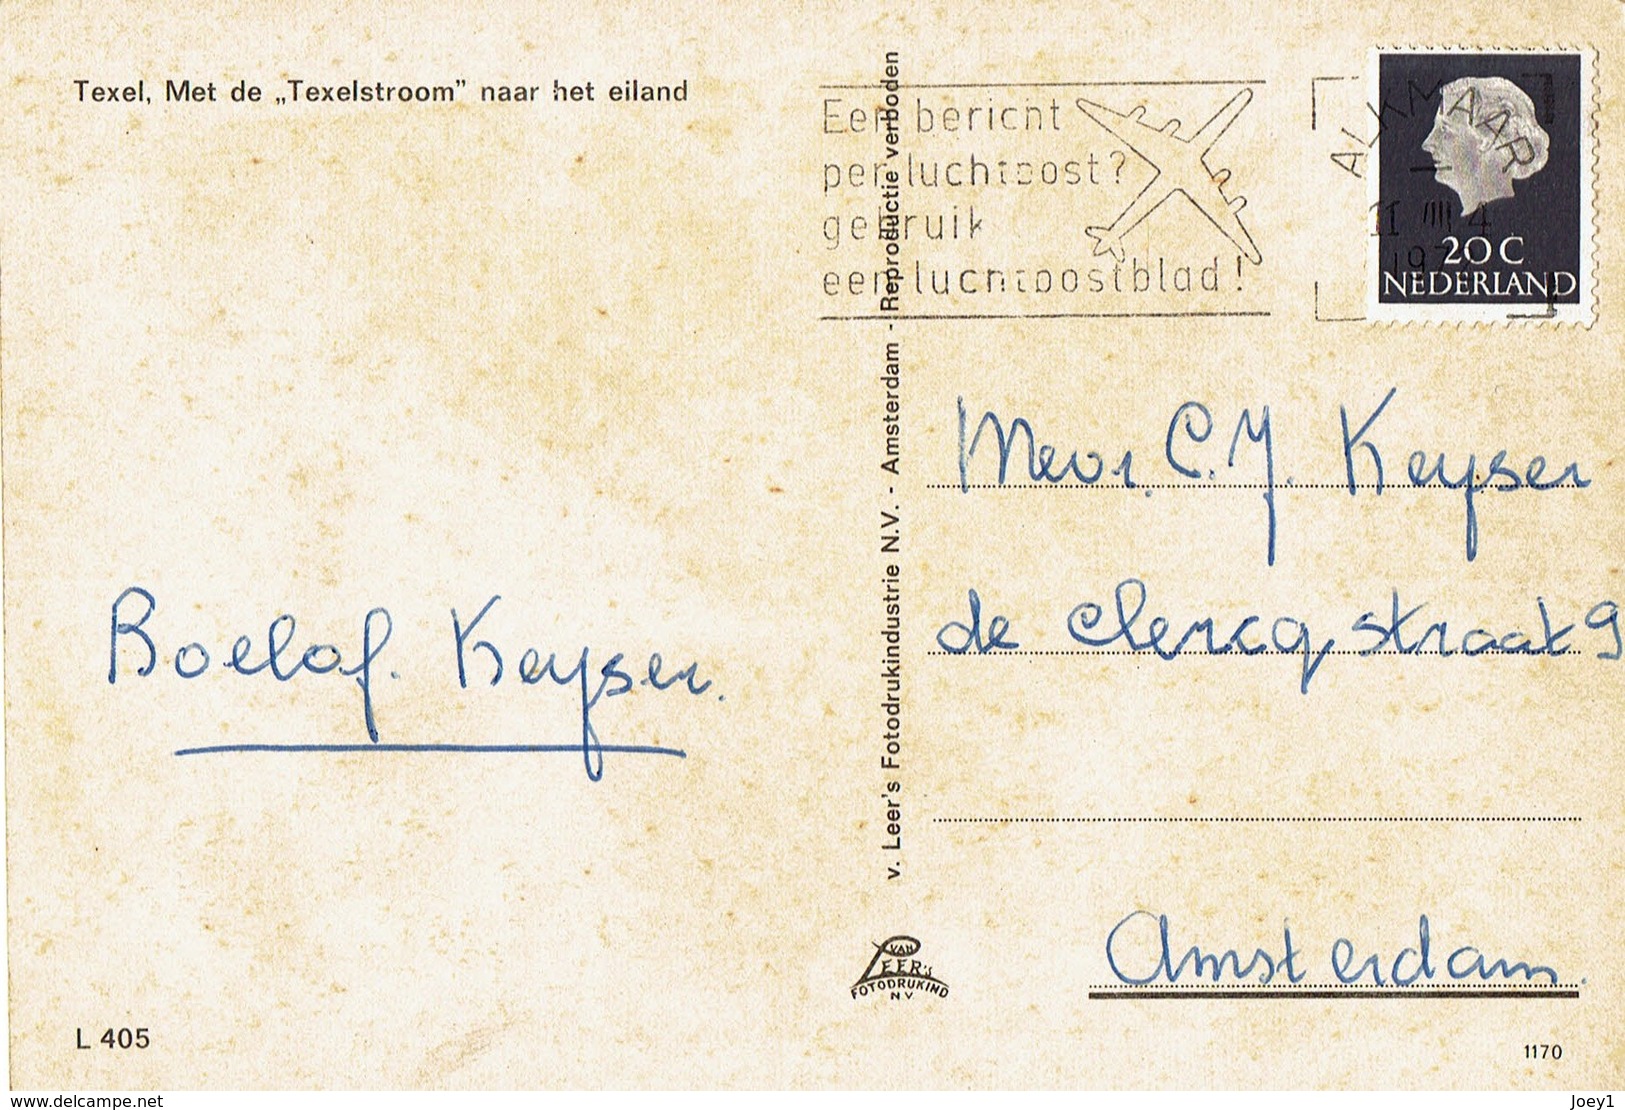 Texel, Met de „Texelstroom” naar het eiland
Een bericht
per luchtpost?
gebruik
een luchtpostblad!
ALKMAAR
20 C
NEDERLAND
v. Leer's Fotodrukindustrie N.V. - Amsterdam - Reproductie verboden
Mevr. C. J. Keyser
de Clercqstraat 9
Roelof. Keyser.
Amsterdam.
VAN
LEER'S
FOTODRUKIND
N V
L 405
1170
www.delcampe.net
Joey1